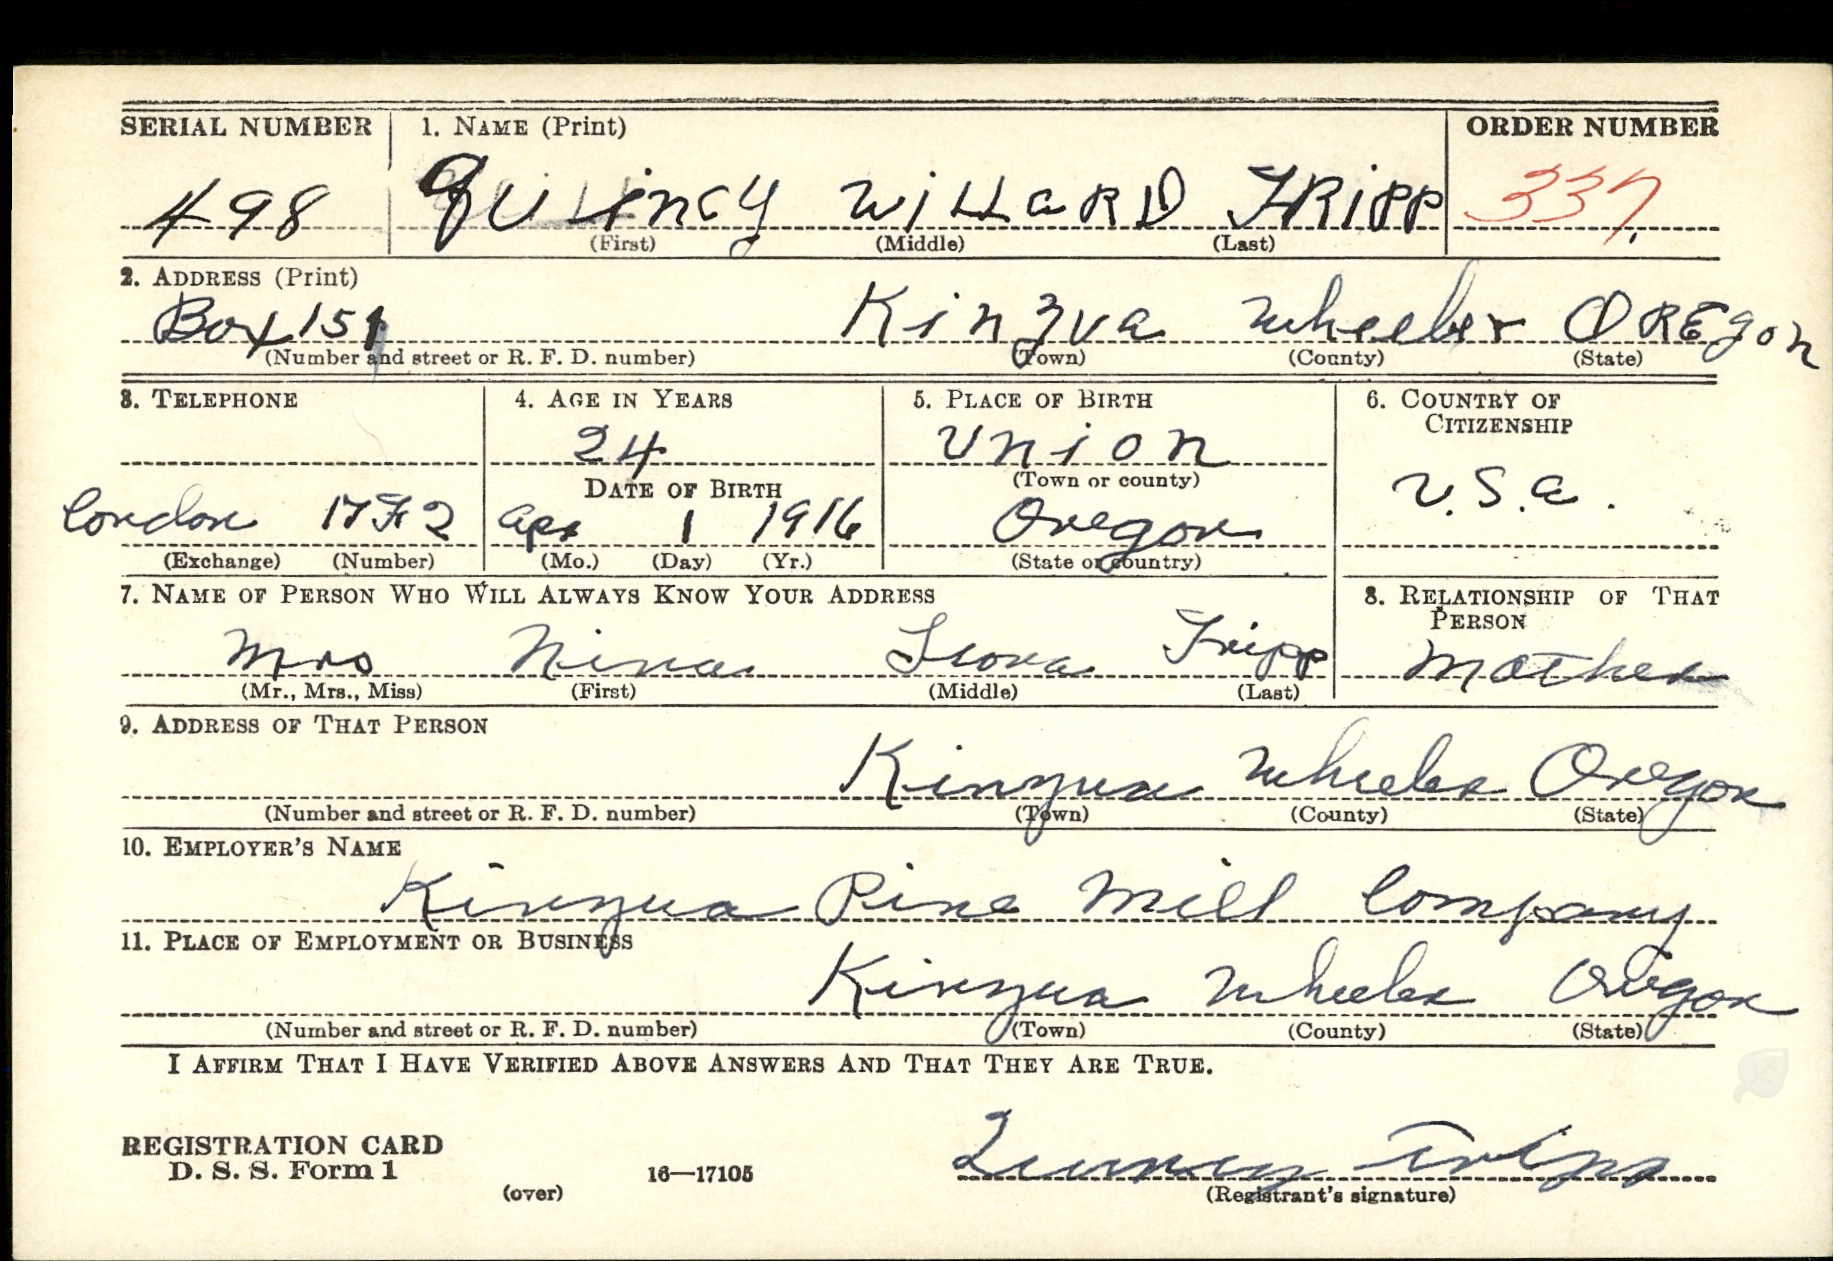 SERIAL NUMBER 1. NAME (Print) ORDER NUMBER
498 QUincy WiLLaRD FRiPP 337
(First) (Middle) (Last)
2. ADDRESS (Print)
Box 151 Kinzua Wheeler OREgon
(Number and street or R. F. D. number) (Town) (County) (State)
3. TELEPHONE 4. AGE IN YEARS 5. PLACE OF BIRTH 6. COUNTRY OF
CITIZENSHIP
24 Union U.S.a.
DATE OF BIRTH (Town or county)
Condon 17F2 Apr 1 1916 Oregon
(Exchange) (Number) (Mo.) (Day) (Yr.) (State or country)
7. NAME OF PERSON WHO WILL ALWAYS KNOW YOUR ADDRESS 8. RELATIONSHIP OF THAT
PERSON
Mrs Nina Leona Fripp Mother
(Mr., Mrs., Miss) (First) (Middle) (Last)
9. ADDRESS OF THAT PERSON
Kinzua Wheeler Oregon
(Number and street or R. F. D. number) (Town) (County) (State)
10. EMPLOYER'S NAME
Kinzua Pine Mill Company
11. PLACE OF EMPLOYMENT OR BUSINESS
Kinzua Wheeler Oregon
(Number and street or R. F. D. number) (Town) (County) (State)
I AFFIRM THAT I HAVE VERIFIED ABOVE ANSWERS AND THAT THEY ARE TRUE.
REGISTRATION CARD
D. S. S. Form 1 16—17105 Quincy Fripp
(over) (Registrant's signature)